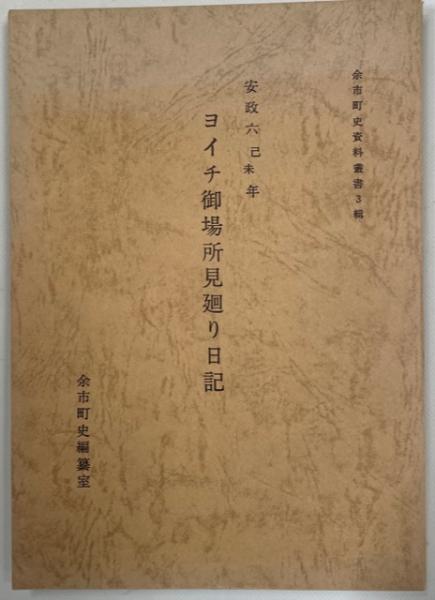 余市町史資料叢書3輯
安政六己未年
ヨイチ御場所見廻り日記
余市町史編纂室